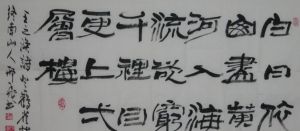 白日依
山盡黃
河入海
流欲窮
千裡目
更上弌
層樓
王之渙詩登鸛雀樓
山人